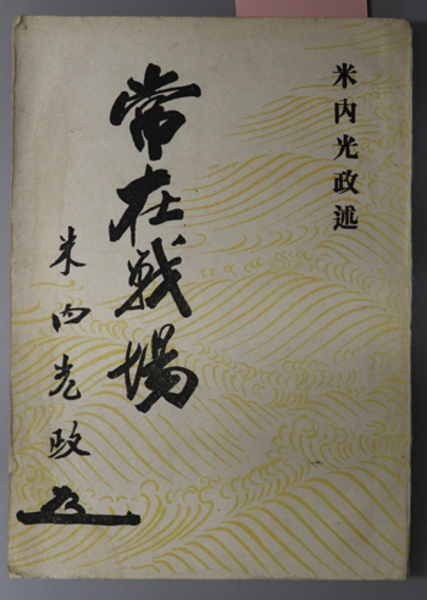 米内光政述
常在戦場
米内光政